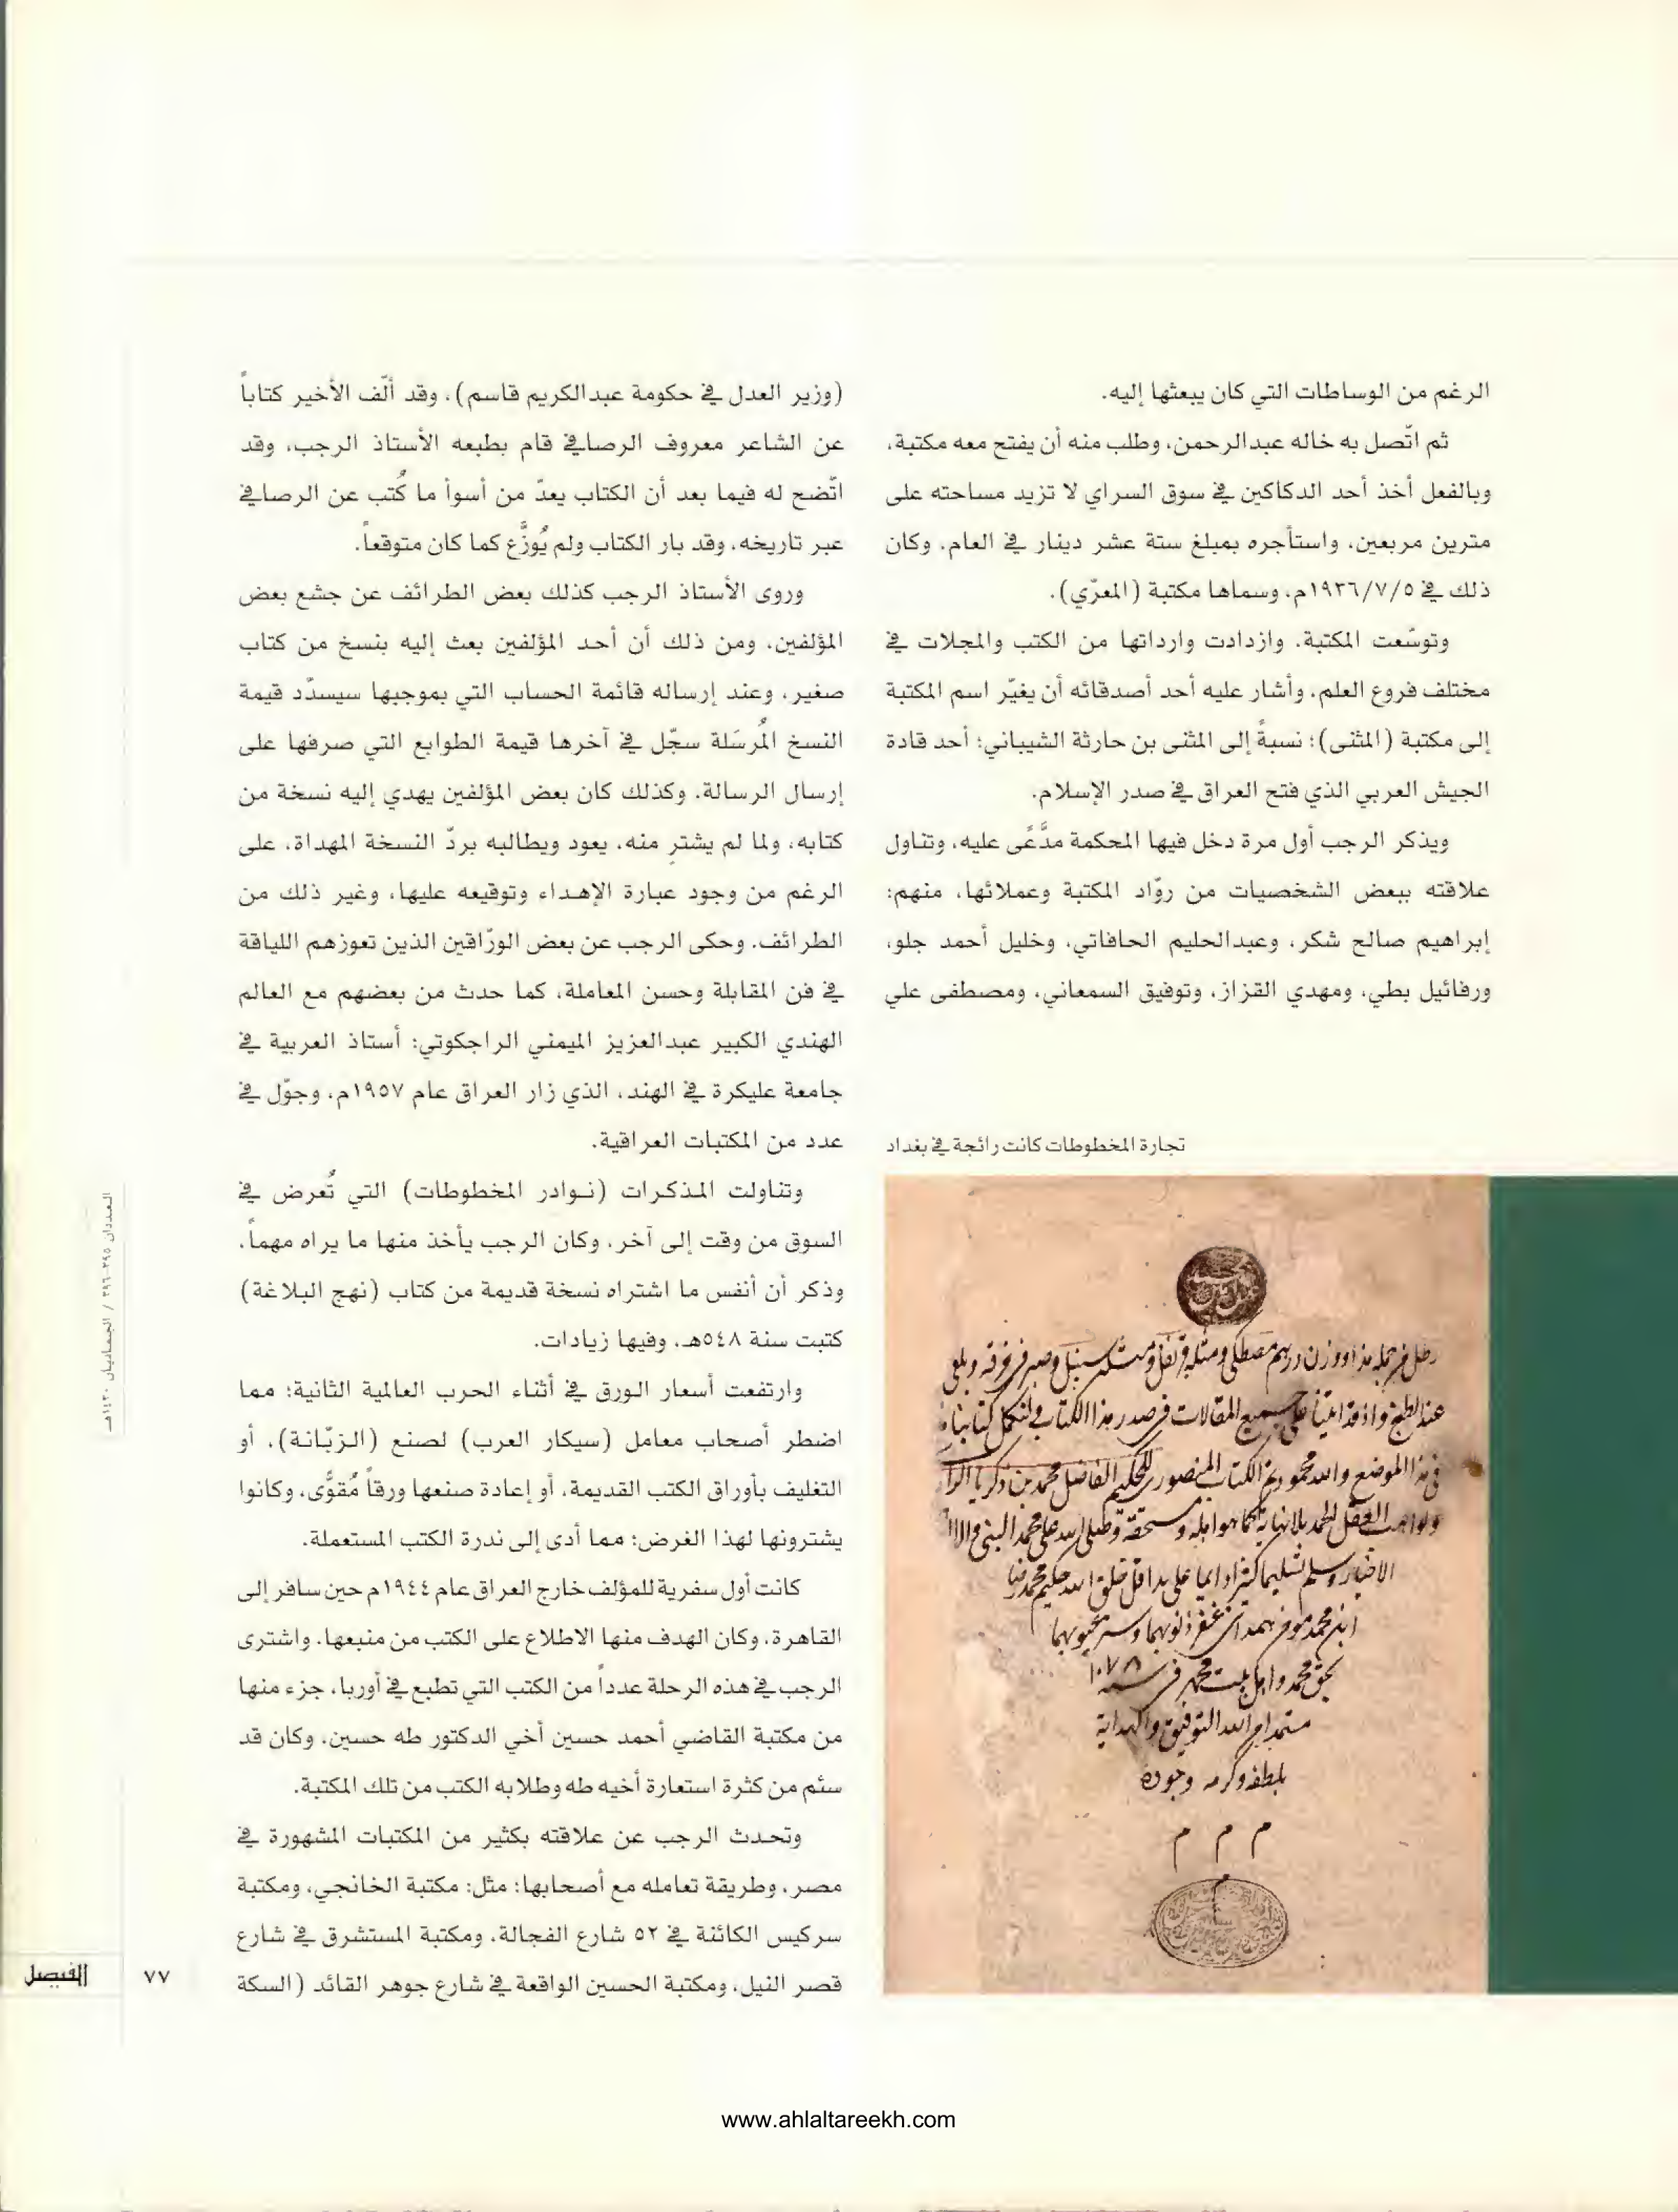 الرغم من الوساطات التي كان يبعثها إليه.
ثم اتّصل به خاله عبدالرحمن، وطلب منه أن يفتح معه مكتبة،
وبالفعل أخذ أحد الدكاكين في سوق السراي لا تزيد مساحته على
مترين مربعين، واستأجره بمبلغ ستة عشر دينار في العام، وكان
ذلك في ١٩٣٦/٧/٥م، وسماها مكتبة (المعرّي).
وتوسّعت المكتبة، وازدادت وارداتها من الكتب والمجلات في
مختلف فروع العلم، وأشار عليه أحد أصدقائه أن يغيّر اسم المكتبة
إلى مكتبة (المثنى)؛ نسبةً إلى المثنى بن حارثة الشيباني؛ أحد قادة
الجيش العربي الذي فتح العراق في صدر الإسلام.
ويذكر الرجب أول مرة دخل فيها المحكمة مدَّعًى عليه، وتناول
علاقته ببعض الشخصيات من روّاد المكتبة وعملائها، منهم:
إبراهيم صالح شكر، وعبدالحليم الحافاتي، وخليل أحمد جلو،
ورفائيل بطي، ومهدي القزاز، وتوفيق السمعاني، ومصطفى علي
(وزير العدل في حكومة عبدالكريم قاسم)، وقد ألّف الأخير كتاباً
عن الشاعر معروف الرصافي قام بطبعه الأستاذ الرجب، وقد
اتّضح له فيما بعد أن الكتاب يعدّ من أسوأ ما كُتب عن الرصافي
عبر تاريخه، وقد بار الكتاب ولم يُوزَّع كما كان متوقعاً.
وروى الأستاذ الرجب كذلك بعض الطرائف عن جشع بعض
المؤلفين، ومن ذلك أن أحد المؤلفين بعث إليه بنسخ من كتاب
صغير، وعند إرساله قائمة الحساب التي بموجبها سيسدّد قيمة
النسخ المُرسَلة سجّل في آخرها قيمة الطوابع التي صرفها على
إرسال الرسالة، وكذلك كان بعض المؤلفين يهدي إليه نسخة من
كتابه، ولما لم يشترِ منه، يعود ويطالبه بردّ النسخة المهداة، على
الرغم من وجود عبارة الإهداء وتوقيعه عليها، وغير ذلك من
الطرائف. وحكى الرجب عن بعض الورّاقين الذين تعوزهم اللياقة
في فن المقابلة وحسن المعاملة، كما حدث من بعضهم مع العالم
الهندي الكبير عبدالعزيز الميمني الراجكوتي: أستاذ العربية في
جامعة عليكرة في الهند، الذي زار العراق عام ١٩٥٧م، وجوّل في
عدد من المكتبات العراقية.
وتناولت المذكرات (نوادر المخطوطات) التي تُعرض في
السوق من وقت إلى آخر، وكان الرجب يأخذ منها ما يراه مهماً،
وذكر أن أنفس ما اشتراه نسخة قديمة من كتاب (نهج البلاغة)
كتبت سنة ٥٤٨هـ، وفيها زيادات.
وارتفعت أسعار الورق في أثناء الحرب العالمية الثانية؛ مما
اضطر أصحاب معامل (سيكار العرب) لصنع (الزبّانة)، أو
التغليف بأوراق الكتب القديمة، أو إعادة صنعها ورقاً مُقوًّى، وكانوا
يشترونها لهذا الغرض؛ مما أدى إلى ندرة الكتب المستعملة.
كانت أول سفرية للمؤلف خارج العراق عام ١٩٤٤م حين سافر إلى
القاهرة، وكان الهدف منها الاطلاع على الكتب من منبعها، واشترى
الرجب في هذه الرحلة عدداً من الكتب التي تطبع في أوربا، جزء منها
من مكتبة القاضي أحمد حسين أخي الدكتور طه حسين، وكان قد
سئم من كثرة استعارة أخيه طه وطلابه الكتب من تلك المكتبة.
وتحدث الرجب عن علاقته بكثير من المكتبات المشهورة في
مصر، وطريقة تعامله مع أصحابها؛ مثل: مكتبة الخانجي، ومكتبة
سركيس الكائنة في ٥٢ شارع الفجالة، ومكتبة المستشرق في شارع
قصر النيل، ومكتبة الحسين الواقعة في شارع جوهر القائد (السكة
تجارة المخطوطات كانت رائجة في بغداد
في هذا الموضع والله محمود تم الكتاب المنصوري للحكيم الفاضل محمد بن زكريا
١٠٧٨
بلطفه وكرمه وجوده
م م م
العددان ٣٩٥-٣٩٦ / الجماديان ١٤٣٠هـ
٧٧
الفيصل
www.ahlaltareekh.com